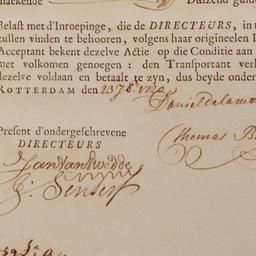 maekende
Duizend guld
Belast met d'Inroepinge, die de DIRECTEURS, in t
zullen vinden te behooren, volgens haar origineelen I
Acceptant bekent dezelve Actie op die Conditie aan
met volkomen genoegen: den Transportant verk
dezelve voldaan en betaalt te zyn, dus beyde onder
ROTTERDAM den
Daniel
Thomas B
Present d'ondergeschrevene
DIRECTEURS
Jan van
J. Senserf